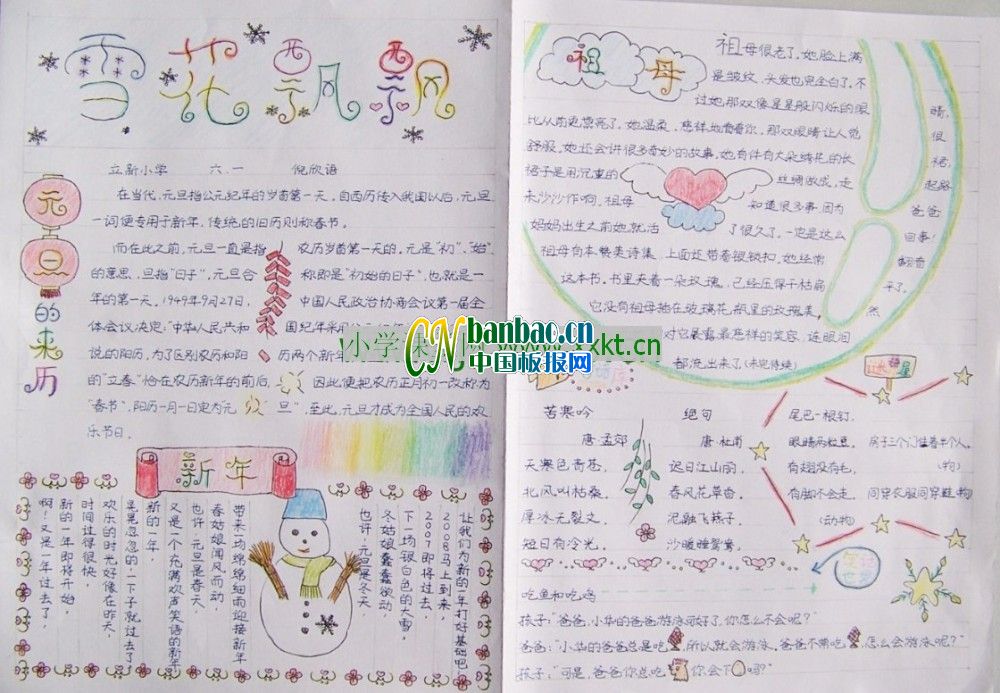 雪花飘飘
立新小学 六.一 倪欣语
元旦的来历
在当代,元旦指公元纪年的岁首第一天。自西历传入我国以后,元旦
一词便专用于新年,传统的旧历则称春节。
而在此之前,元旦一直是指农历岁首第一天的。元是"初"、"始"
的意思,旦指"日子",元旦合称即是"初始的日子",也就是一
年的第一天。1949年9月27日,中国人民政治协商会议第一届全
体会议决定:"中华人民共和国纪年采用
说的阳历,为了区别农历和阳历两个新年
的"立春"恰在农历新年的前后,因此便把农历正月初一改称为
"春节",阳历一月一日定为元"旦",至此,元旦才成为全国人民的欢
乐节日。
新年
让我们为新的一年打好基础吧!
2008马上到来,
2007即将过去,
下一场银白色的大雪,
冬姑娘蠢蠢欲动
也许,元旦是冬天,
带来一场绵绵细雨迎接新年
春姑娘闻风而动
也许,元旦是春天,
又是一个充满欢声笑语的新年
新的一年,
晃晃忽忽的一下子就过去了,
欢乐的时光好像在昨天,
时间过得很快,
新的一年即将开始,
啊!又是一年过去了,
祖母
祖母很老了,她脸上满
是皱纹,头发也完全白了,不
过她那双像星星般闪烁的眼睛,
比从前更漂亮了。她温柔、慈祥地看着你,那双眼睛让人很
舒服。她还会讲很多奇妙的故事,她有件有大朵绣花的长裙,
裙子是用沉重的丝绸做成,走起路
来沙沙作响。祖母知道很多事,因为爸爸
妈妈出生之前她就活了很久了,一定是这么回事!
祖母有本赞美诗集,上面还带着银锁扣,她经常翻着
这本书。书里夹着一朵玫瑰,已经压得干枯扁平了。
它没有祖母插在玻璃花瓶里的玫瑰美,然
对它展露最慈祥的笑容,连眼泪
都流出来了(未完待续)
苦寒吟
唐·孟郊
天寒色青苍,
北风叫枯桑。
厚冰无裂文,
短日有冷光。
绝句
唐·杜甫
迟日江山丽,
春风花草香。
泥融飞燕子,
沙暖睡鸳鸯。
谜语星
尾巴一根钉,
眼睛两粒星,
有翅没有毛,
有脚不会走。
(动物)
房子三个门住着半个人。
(物)
同穿衣服同穿鞋(物)
笑话世界
吃鱼和吃鸡
孩子:"爸爸,小华的爸爸游泳可好了,你怎么不会呢?"
爸爸:"小华的爸爸总是吃,所以就会游泳,爸爸不常吃,怎么会游泳呢?"
孩子:"可是,爸爸你总吃你会下吗?"
小学课
xkt.cn
CN banbao.cn
中国板报网